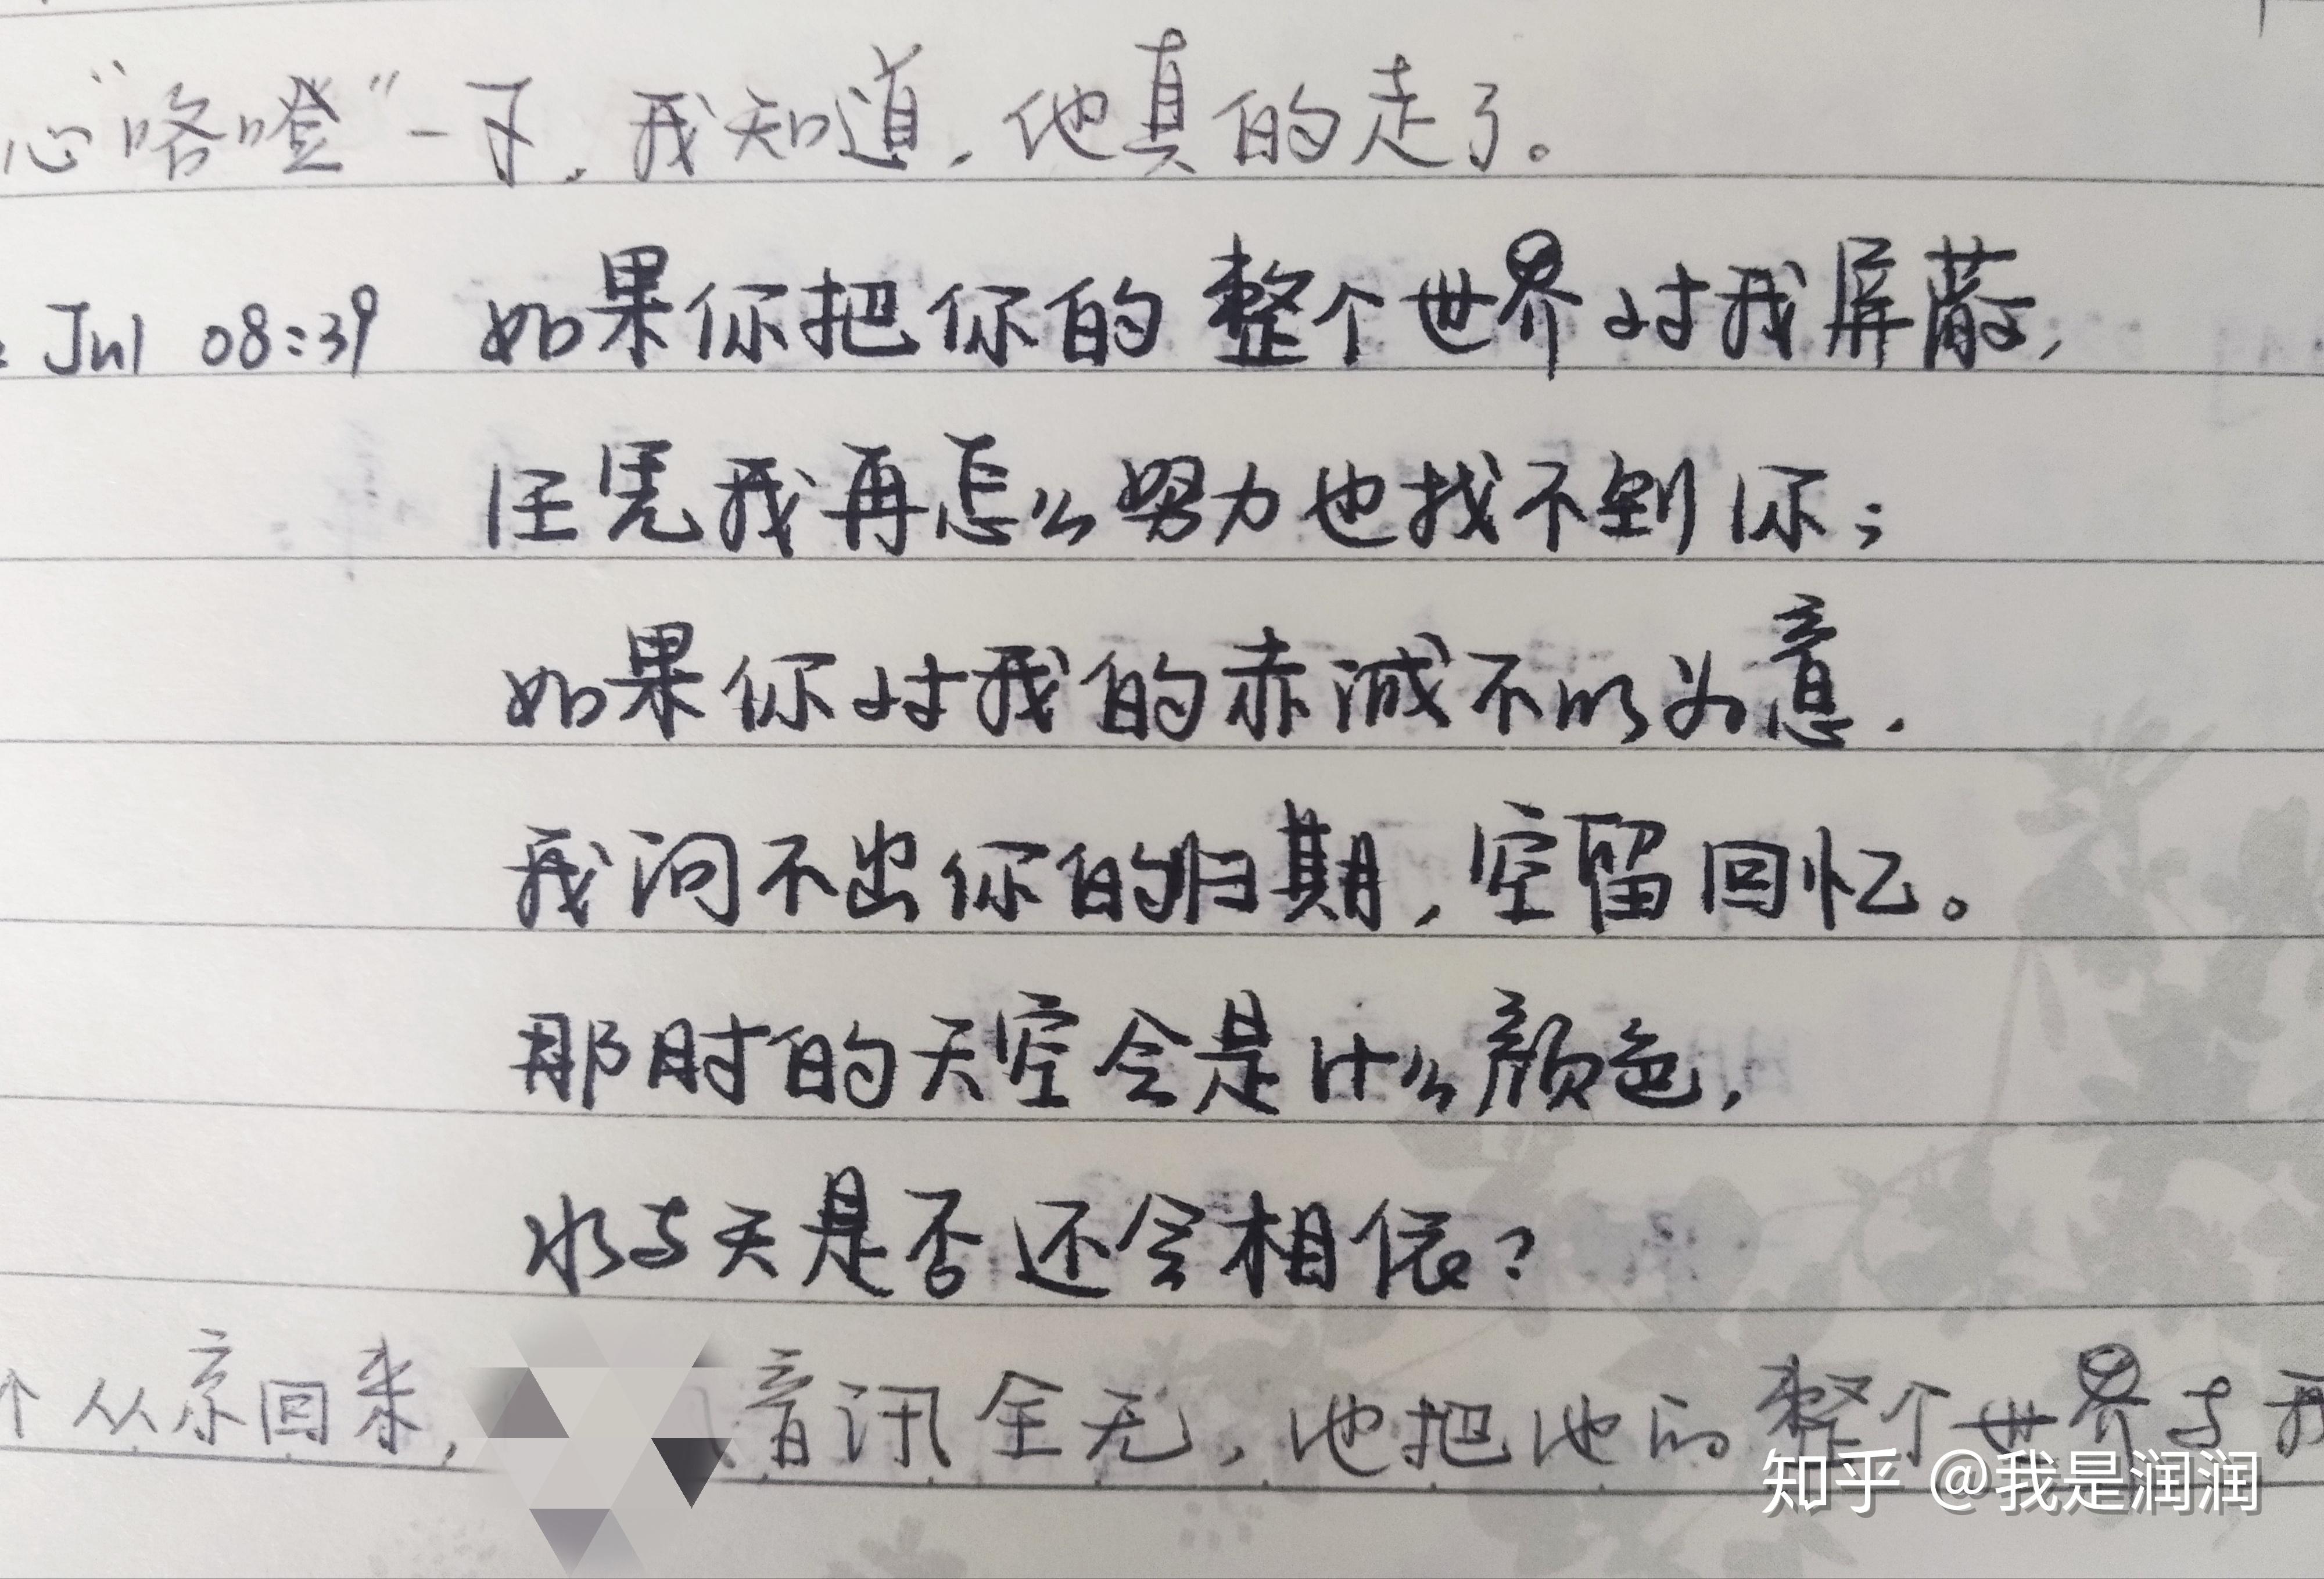 心“咯噔”一下，我知道，他真的走了。
Jul 08:39 如果你把你的整个世界对我屏蔽，
任凭我再怎么努力也找不到你；
如果你对我的赤诚不以为意，
我问不出你的归期，空留回忆。
那时的天空会是什么颜色，
水与天是否还会相依？
个从京回来，音讯全无，他把他的整个世界与我
知乎 @我是润润